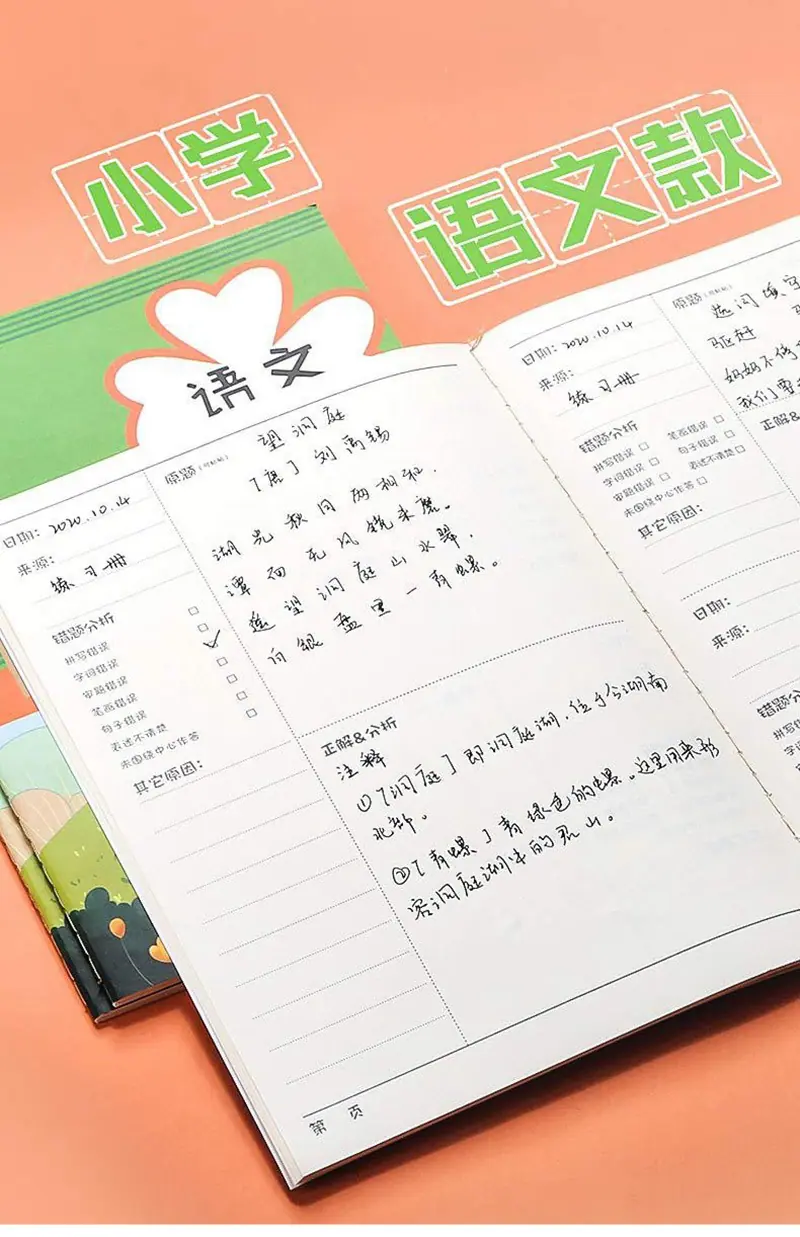 小学
语文款
语文
日期: 2020.10.14
来源:
练习册
错题分析
拼写错误
字词错误
审题错误
笔画错误
句子错误
表述不清楚
未围绕中心作答
其它原因:
原题(可粘贴)
望洞庭
「唐」刘禹锡
湖光秋月两相和,
潭面无风镜未磨。
遥望洞庭山水翠,
白银盘里一青螺。
正解&分析
注释
①「洞庭」即洞庭湖,位于今湖南
北部。
②「青螺」青绿色的螺。这里用来形
容洞庭湖中的君山。
第 页
日期: 2020.10.14
来源:
练习册
错题分析
拼写错误 笔画错误
字词错误 句子错误
审题错误 表述不清楚
未围绕中心作答
其它原因:
原题(可粘贴)
选词填空
驱赶
我们要
正解&
日期:
来源:
错题分析
拼写错误
字词错误
审题